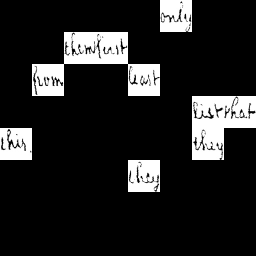 only
them first
from least
list that
this. they
they